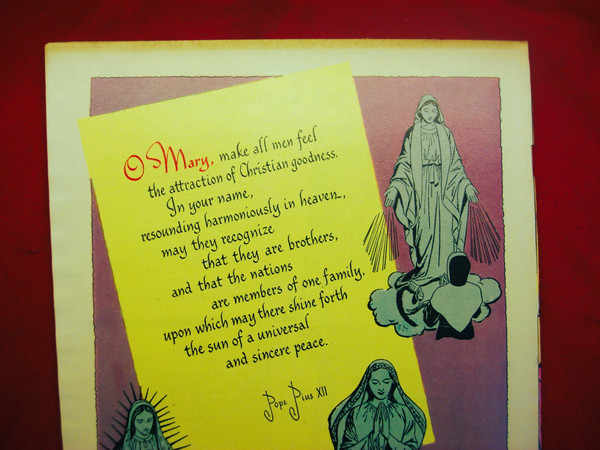 O Mary, make all men feel
the attraction of Christian goodness.
In your name,
resounding harmoniously in heaven,
may they recognize
that they are brothers,
and that the nations
are members of one family,
upon which may there shine forth
the sun of a universal
and sincere peace.
Pope Pius XII